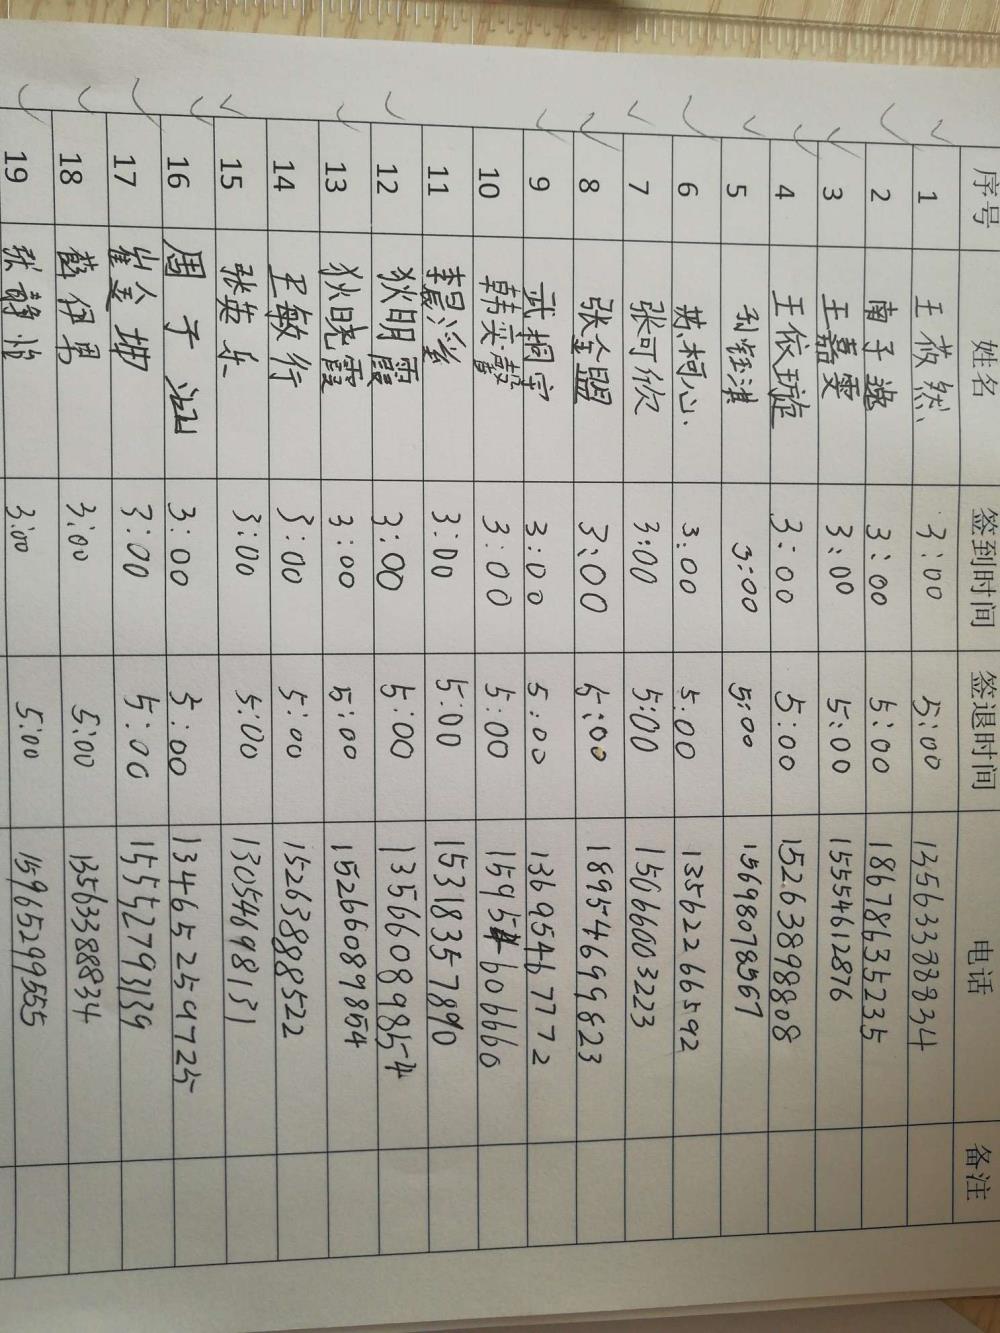 序号 姓名 签到时间 签退时间 电话 备注
1 王莜然 3:00 5:00 13563388834
2 南子逸 3:00 5:00 18678635235
3 王嘉雯 3:00 5:00 15554612876
4 王依璇 3:00 5:00 15263898808
5 3:00 5:00 15698078567
6 柯心 3:00 5:00 13562266592
7 张可欣 3:00 5:00 15066003223
8 张金盟 3:00 5:00 18954699823
9 武桐宇 3:00 5:00 13695467772
10 韩 馨 3:00 5:00
11 李晨 3:00 5:00 15318357890
12 狄明霞 3:00 5:00 13566089854
13 狄晓霞 3:00 5:00 15266089854
14 王敏行 3:00 5:00 15263888522
15 张英东 3:00 5:00 13054698131
16 周子 3:00 5:00 13465259725
17 崔金 3:00 5:00 15552793139
18 伊男 3:00 5:00 13563388834
19 张静怡 3:00 5:00 15965299555